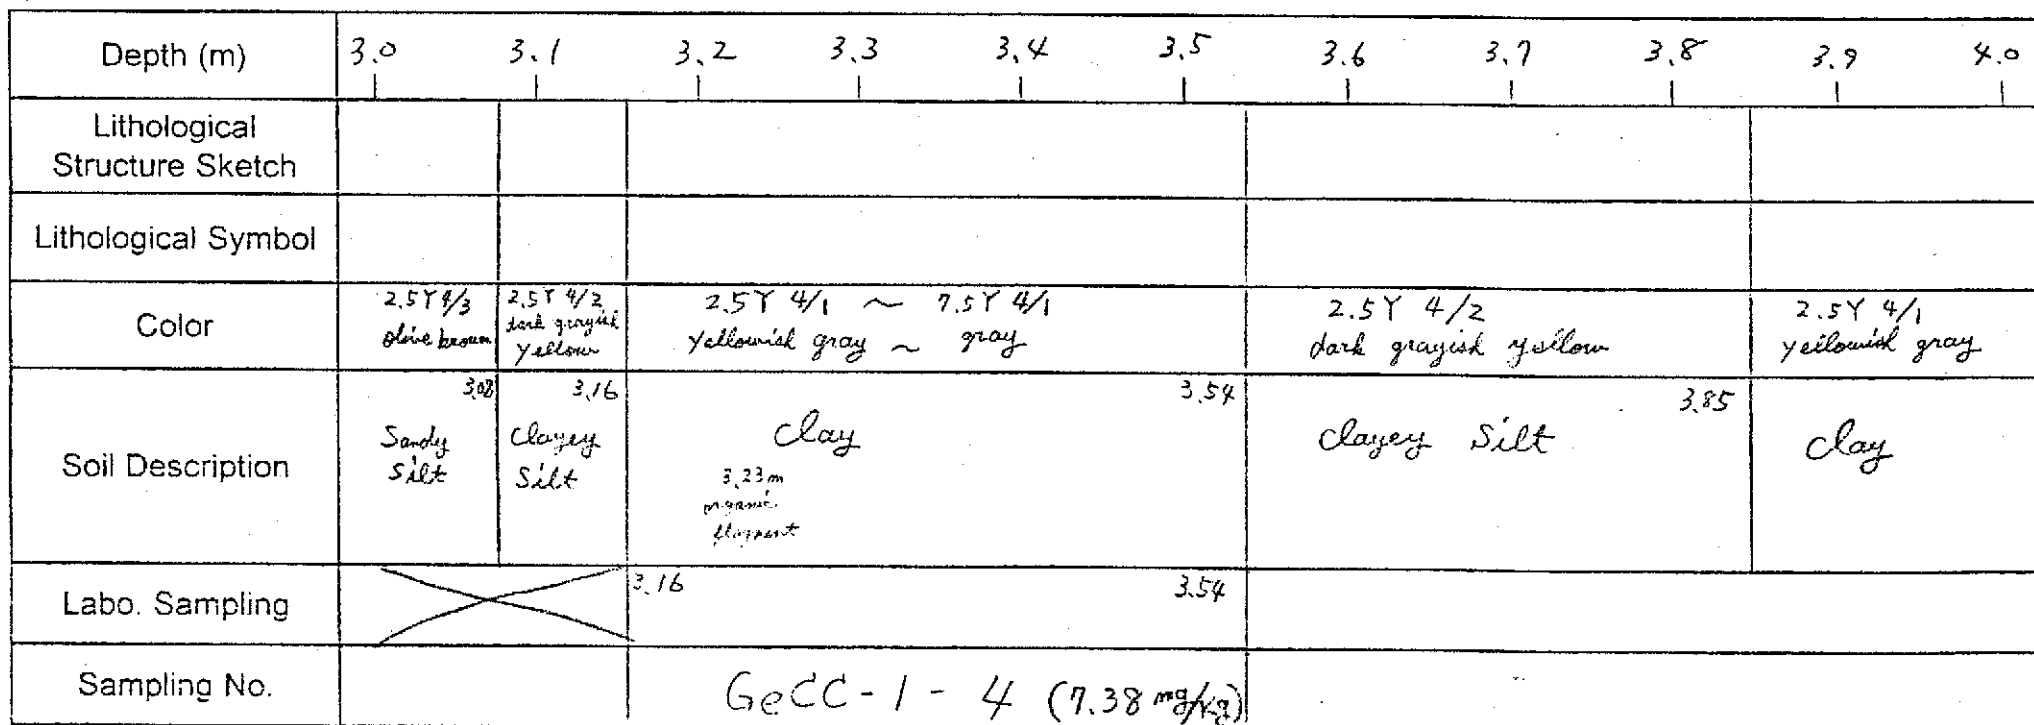 Depth (m) 3.0 3.1 3.2 3.3 3.4 3.5 3.6 3.7 3.8 3.9 4.0
Lithological
Structure Sketch
Lithological Symbol
Color
2.5Y 4/3
olive brown
2.5Y 4/2
dark grayish
yellow
2.5Y 4/1 ~ 7.5Y 4/1
yellowish gray ~ gray
2.5Y 4/2
dark grayish yellow
2.5Y 4/1
yellowish gray
Soil Description
3.08
Sandy
Silt
3.16
Clayey
Silt
3.54
Clay
3.23m
organic
3.85
Clayey Silt
Clay
Labo. Sampling 3.16 3.54
Sampling No. GeCC-1-4 (7.38 mg/kg)